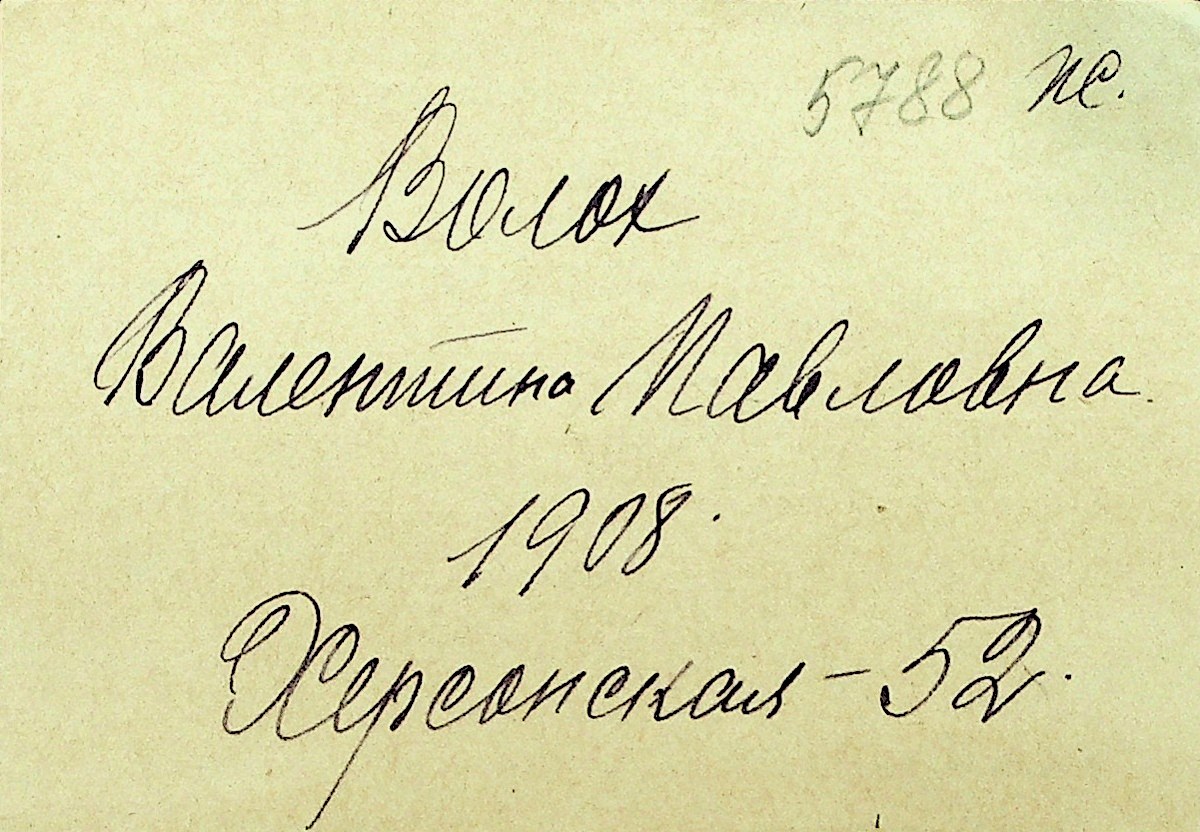 5788 пс.
Волох
Валентина Павловна.
1908.
Херсонская - 52.